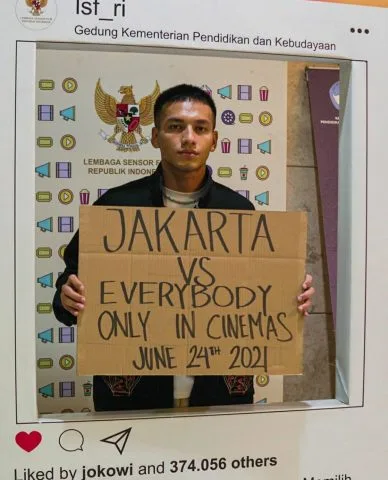 lsf_ri
Gedung Kementerian Pendidikan dan Kebudayaan
LEMBAGA SENSOR
REPUBLIK INDONE
JAKARTA
VS
EVERYBODY
ONLY IN CINEMAS
JUNE 24TH 2021
Liked by jokowi and 374.056 others
Memilih